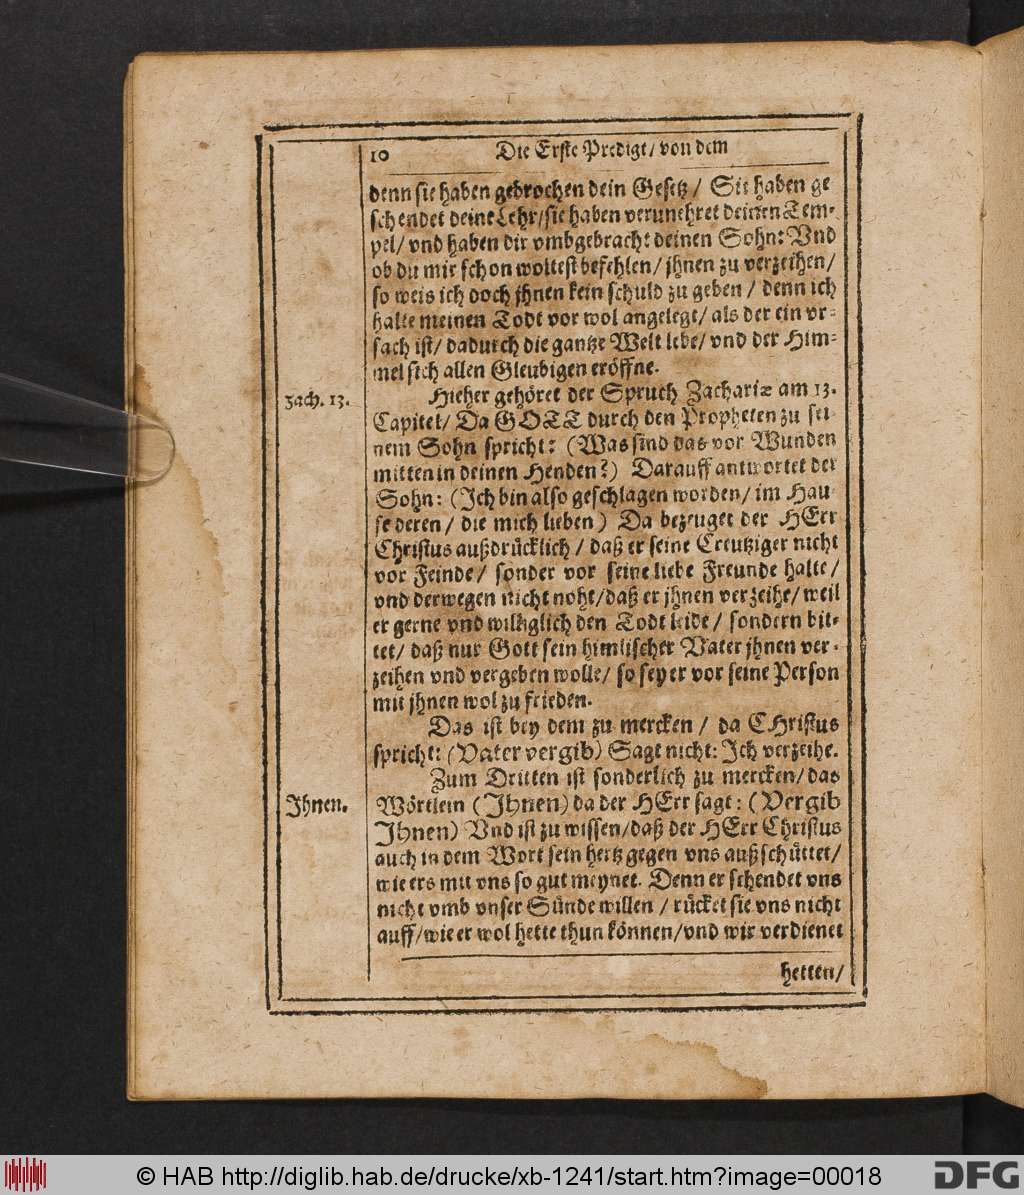 10 Die Erste Predigt/ von dem
denn sie haben gebrochen dein Gesetz/ Sie haben ge
schendet deine Lehr/sie haben verunehret deinen Tem-
pel/ vnd haben dir vmbgebracht deinen Sohn: Vnd
ob du mir schon woltest befehlen/ jhnen zu verzeihen/
so weis ich doch jhnen kein schuld zu geben/ denn ich
halte meinen Todt vor wol angelegt/ als der ein vr-
sach ist/ dadurch die gantze Welt lebe/ vnd der Him-
mel sich allen Gleubigen eröffne.
Zach. 13.
Hieher gehöret der Spruch Zachariæ am 13.
Capitel/ Da GOTT durch den Propheten zu sei
nem Sohn spricht: (Was sind das vor Wunden
mitten in deinen Henden?) Darauff antwortet der
Sohn: (Ich bin also geschlagen worden/ im Hau
se deren/ die mich lieben) Da bezeuget der HErr
Christus außdrücklich/ daß er seine Creutziger nicht
vor Feinde/ sonder vor seine liebe Freunde halte/
vnd derwegen nicht noht/daß er jhnen verzeihe/ weil
er gerne vnd williglich den Todt leide/ sondern bit-
tet/ daß nur Gott sein himlischer Vater jhnen ver-
zeihen vnd vergeben wolle/ so sey er vor seine Person
mit jhnen wol zu frieden.
Das ist bey dem zu mercken/ da CHristus
spricht: (Vater vergib) Sagt nicht: Ich verzeihe.
Zum Dritten ist sonderlich zu mercken/ das
Ihnen.
Wörtlein (Ihnen) da der HErr sagt: (Vergib
Ihnen) Vnd ist zu wissen/daß der HErr Christus
auch in dem Wort sein hertz gegen vns außschüttet/
wie ers mit vns so gut meynet. Denn er schendet vns
nicht vmb vnser Sünde willen/ rücket sie vns nicht
auff/wie er wol hette thun können/vnd wir verdienet
hetten/
© HAB http://diglib.hab.de/drucke/xb-1241/start.htm?image=00018
DFG